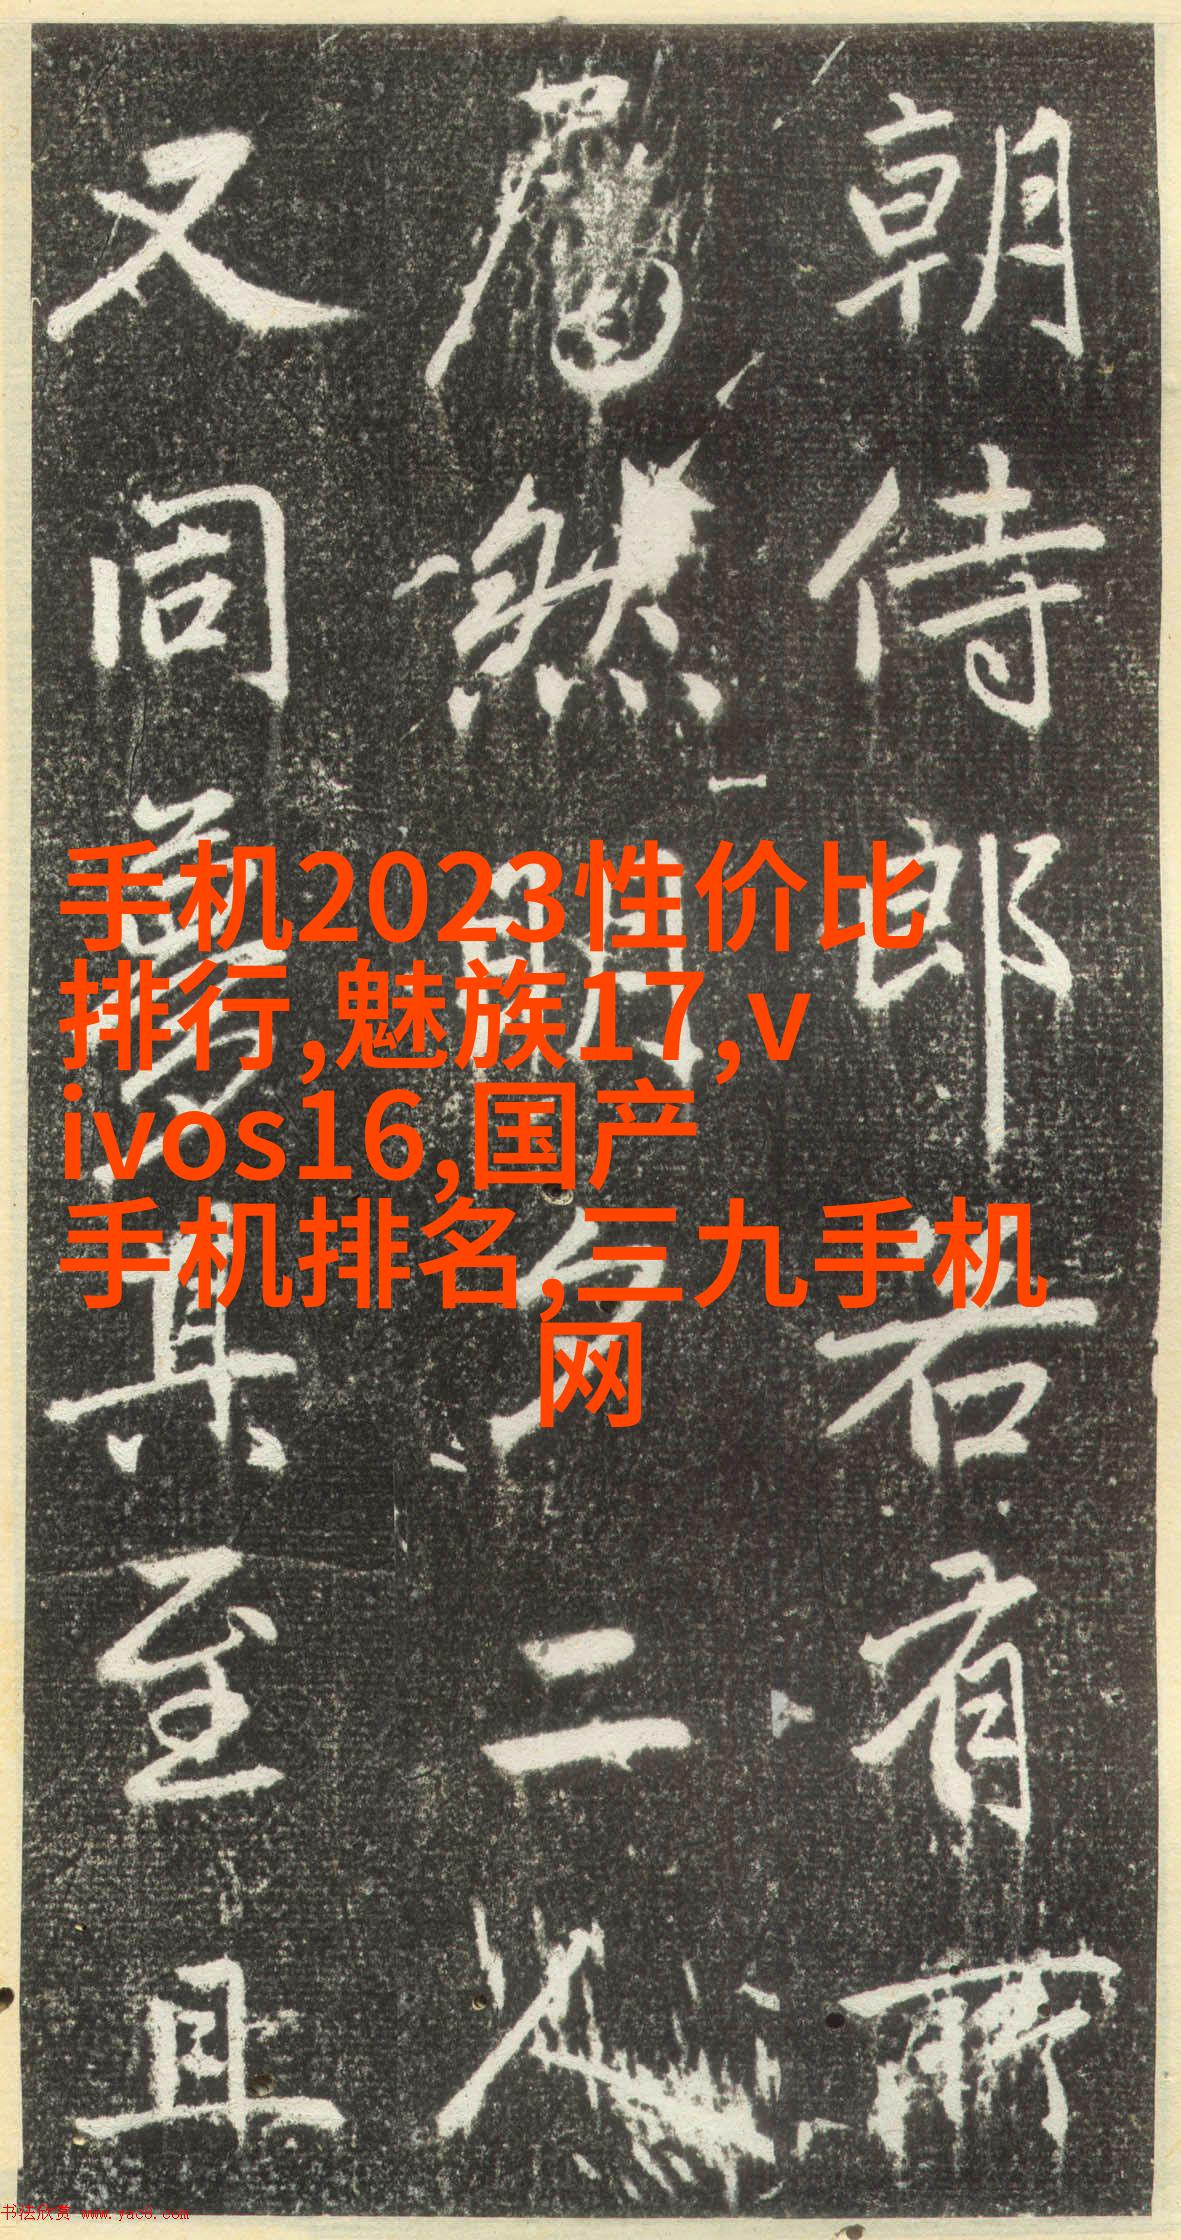 手机2023性价比
排行,魅族17,v
ivos16,国产
手机排名,三九手机
网
朝侍郎若有所
然二人
又同其至且
书法欣赏 www.yac8.com